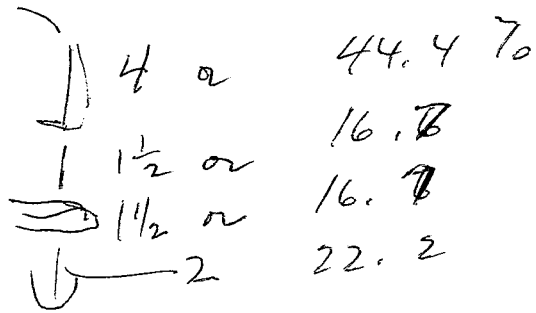 4 or 44.4 %
1 1/2 or 16.
1 1/2 or 16.
2 22.2